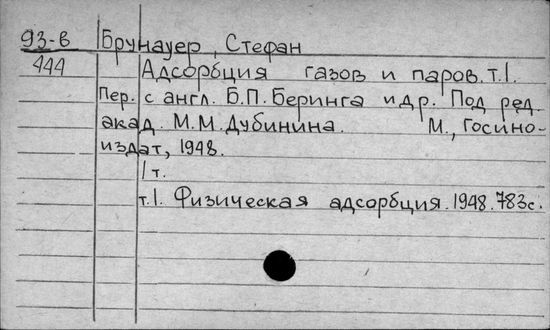 93-в Брунауер, Стефан
444 Адсорбция газов и паров. т.1.
Пер. с англ. Б.П. Беринга и др. Под ред.
акад. М.М. Дубинина. М., Госино-
издат, 1948.
1 т.
т.1. Физическая адсорбция. 1948. 783с.